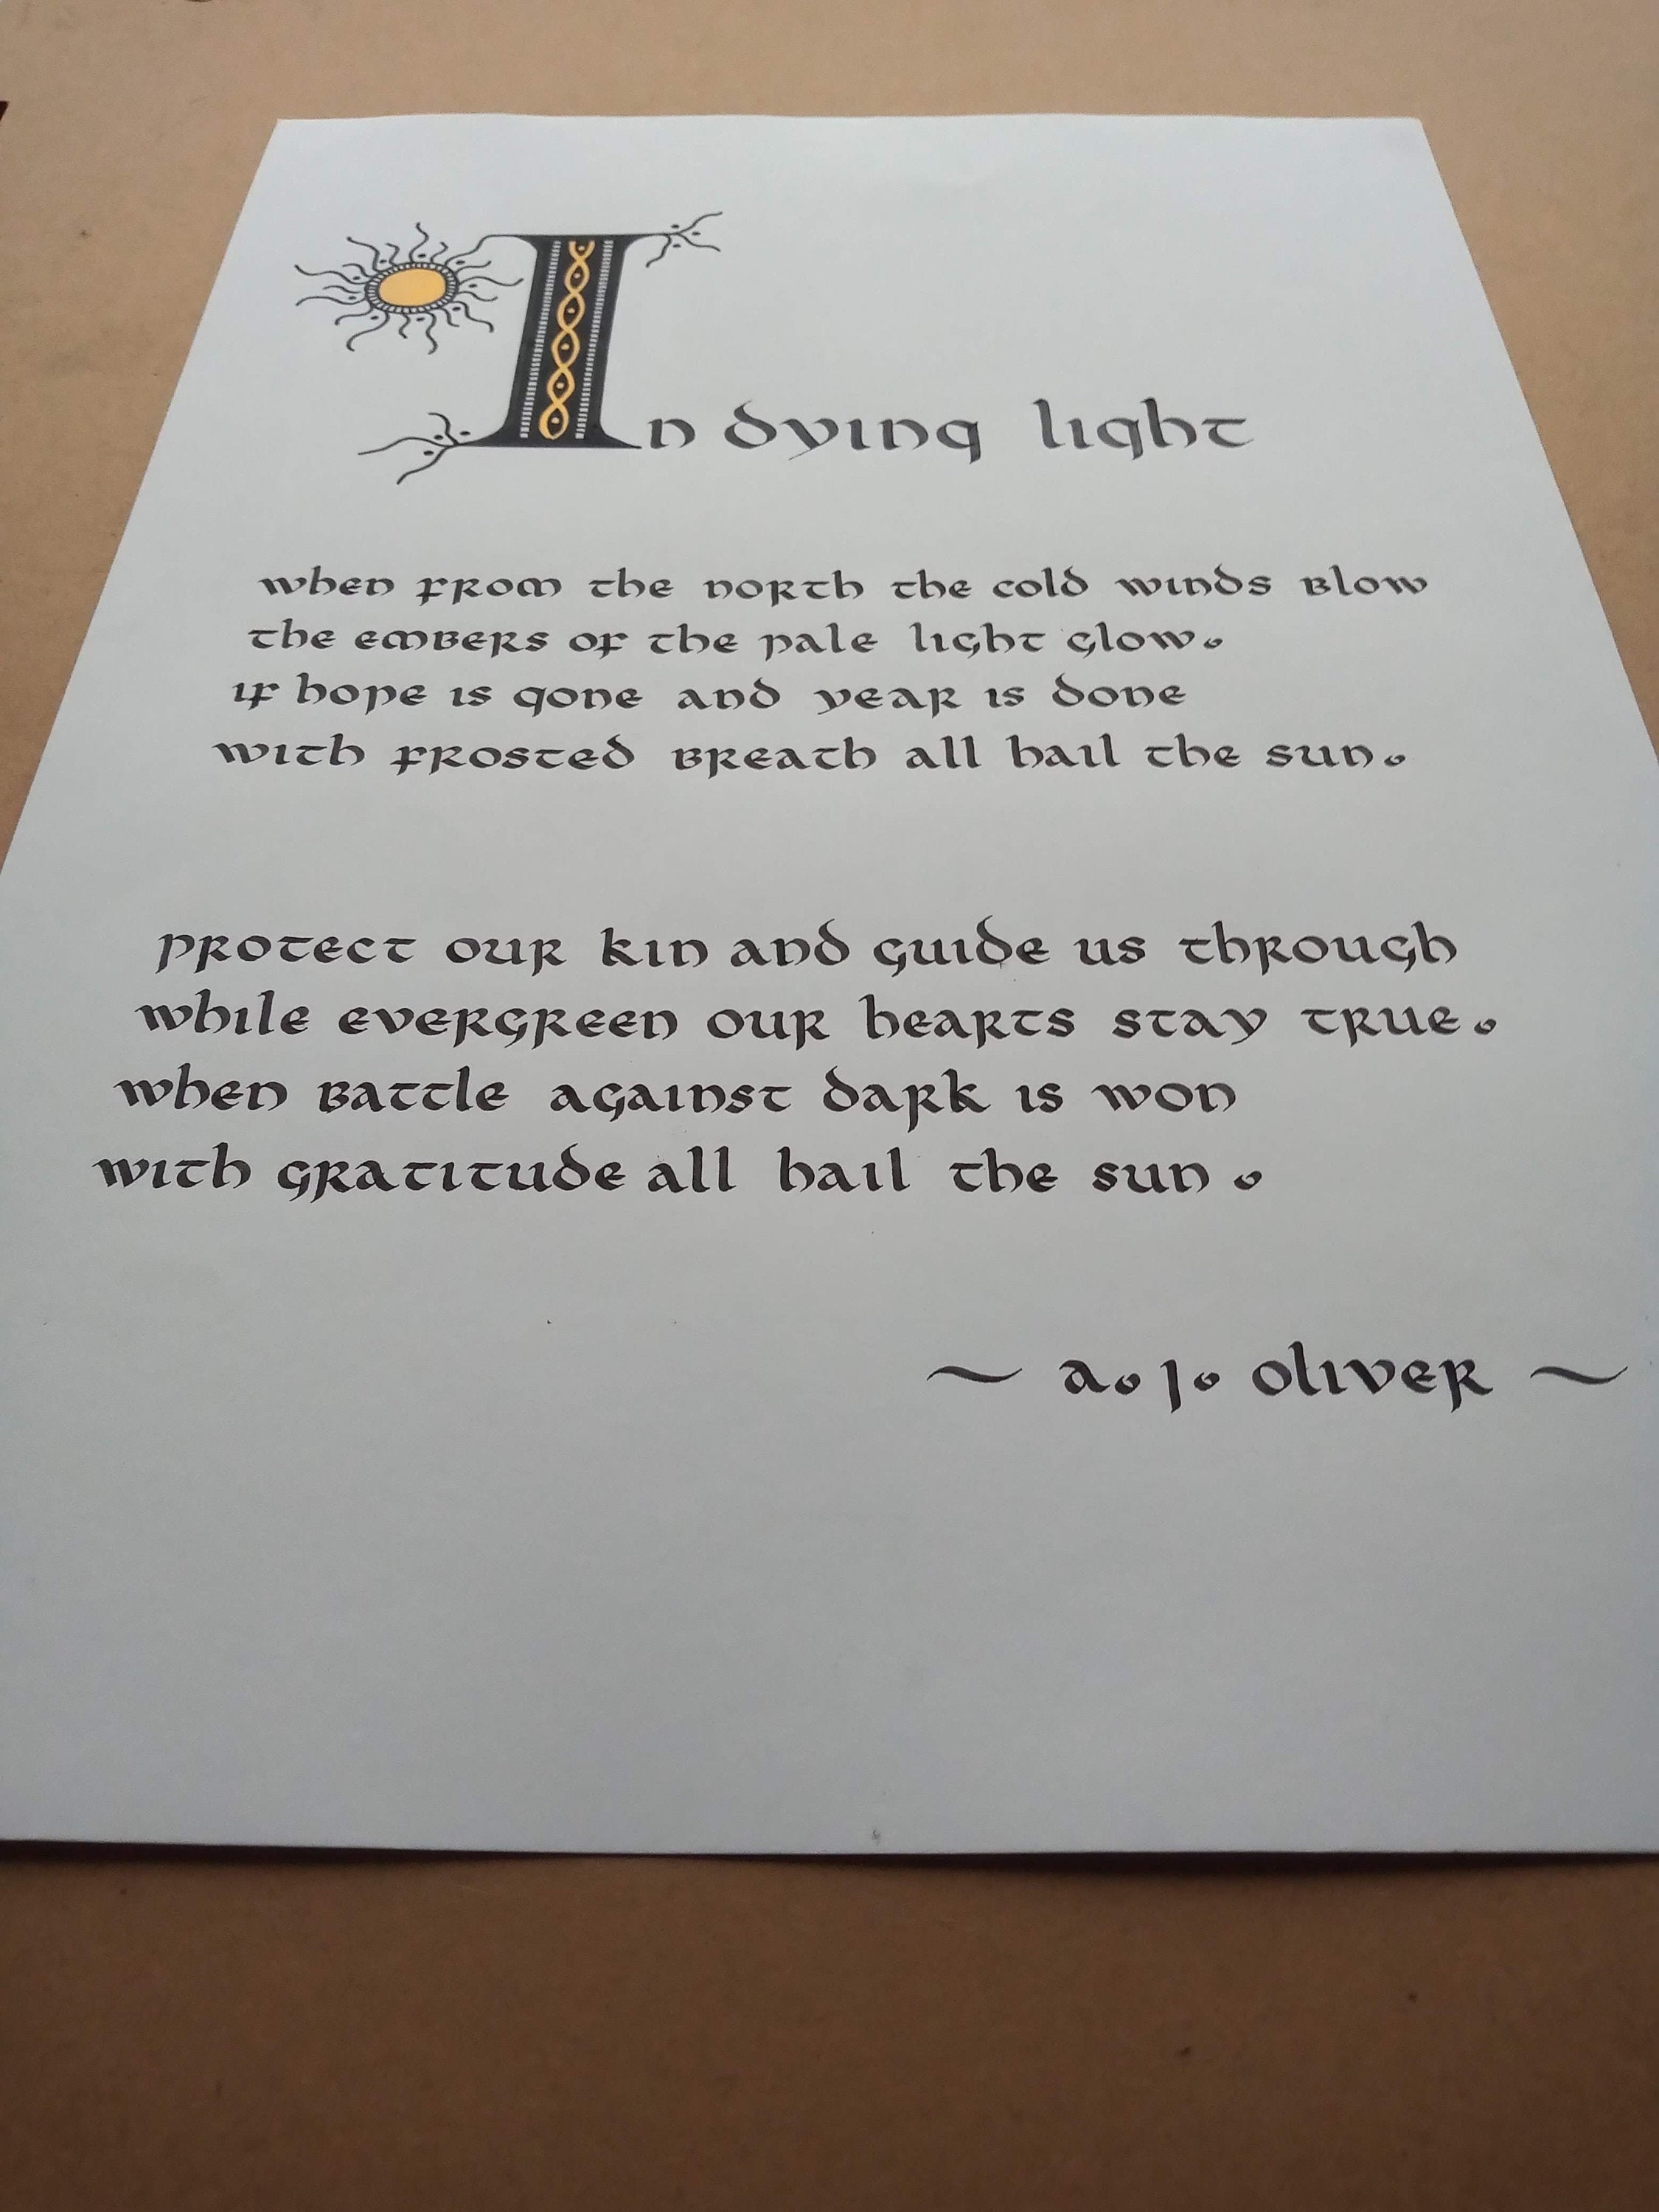 In dying light
when from the north the cold winds blow
the embers of the pale light glow.
if hope is gone and year is done
with frosted breath all hail the sun.
protect our kin and guide us through
while evergreen our hearts stay true.
when battle against dark is won
with gratitude all hail the sun.
~ a. j. oliver ~